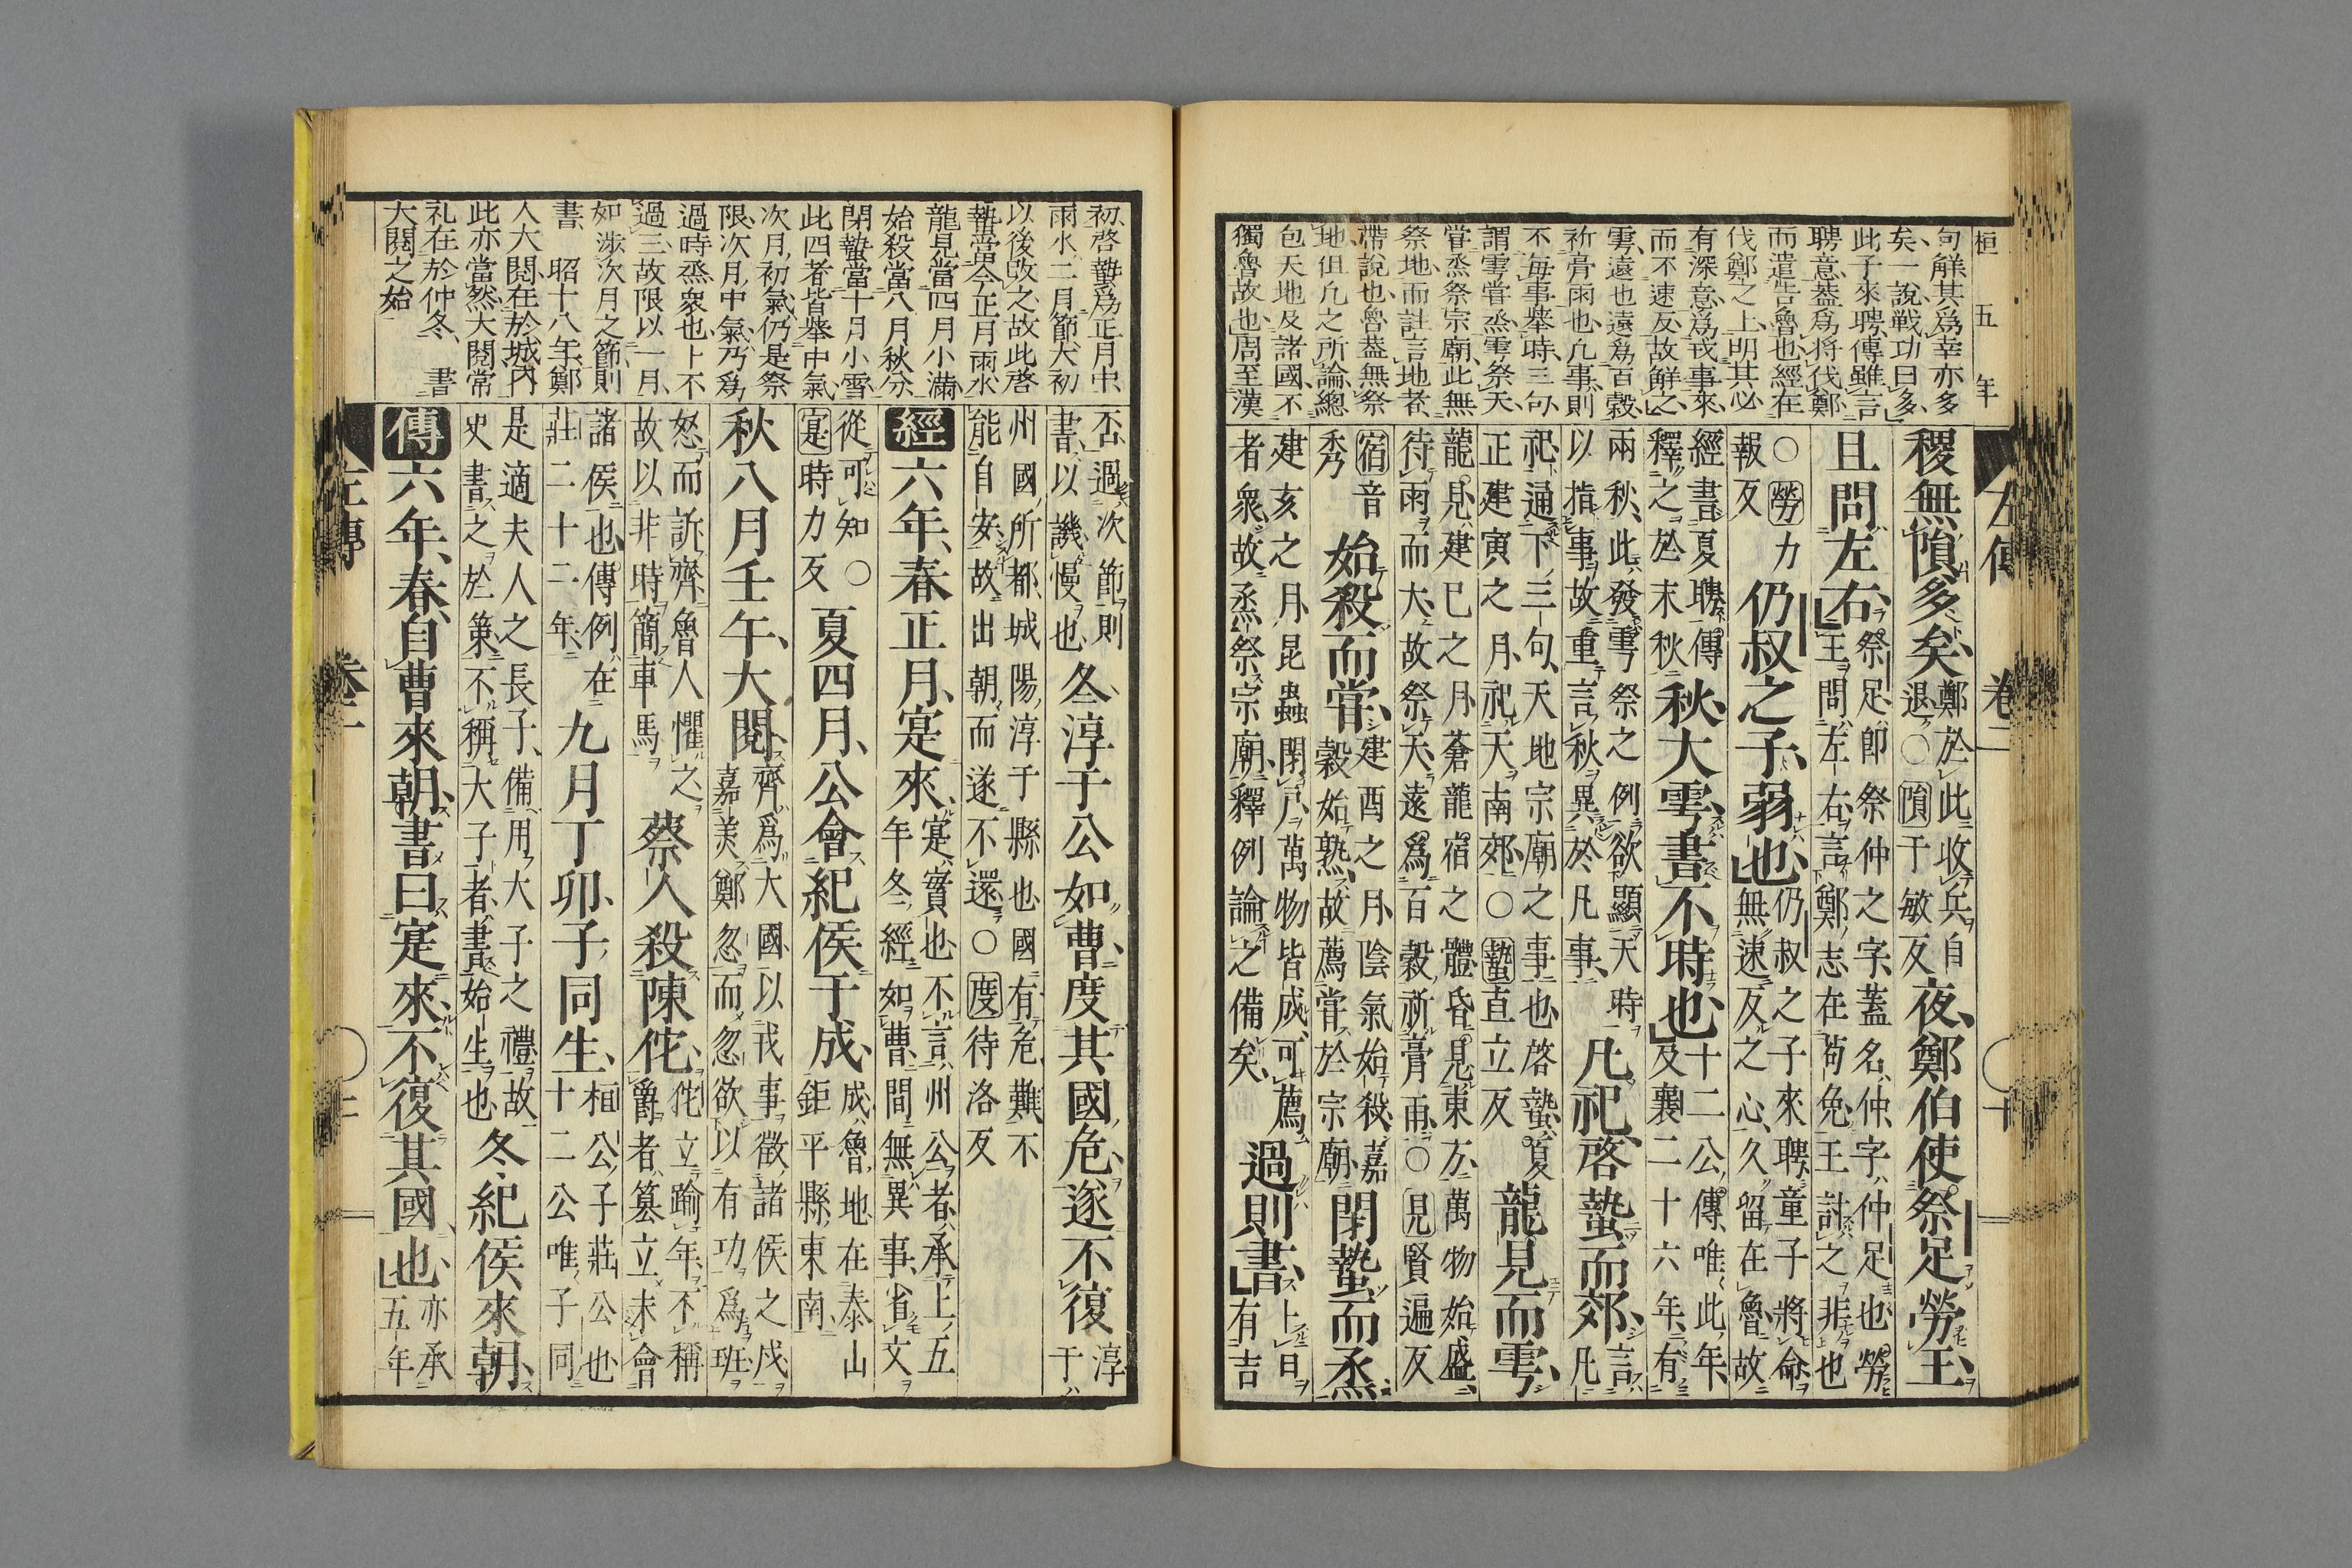 桓 五 年
句解其爲幸亦多
矣一說戰功曰多
此子來聘傳雖言
聘意蓋爲将伐鄭
而遣告魯也經在
伐鄭之上明其必
有深意爲戎事來
而不速反故解之
雩遠也遠爲百穀
祈膏雨也凡事則
不毎事舉時三句
謂雩甞烝雩祭天
甞烝祭宗廟此無
祭地而註言地者
帶說也魯蓋無祭
地但凡之所論總
包天地及諸國不
獨魯故也周至漢
左傳 卷二 十
稷無隕多矣鄭於此收兵自退○隕于敏反夜鄭伯使祭足勞王
且問左右祭足即祭仲之字蓋名仲字仲足也勞王問左右言鄭志在苟免王討之非也
○勞力報反仍叔之子弱也仍叔之子來聘童子將命無速反之心久留在魯故
經書夏聘傳釋之於末秋秋大雩書不時也十二公傳唯此年及襄二十六年有
兩秋此發雩祭之例欲顯天時以指事故重言秋異於凡事凡祀啓蟄而郊言凡
祀通下三句天地宗廟之事也啓蟄夏正建寅之月祀天南郊○蟄直立反龍見而雩
龍見建巳之月蒼龍宿之體昏見東方萬物始盛待雨而大故祭天遠爲百穀祈膏雨○見賢遍反
宿音秀始殺而甞建酉之月陰氣始殺嘉穀始熟故薦甞於宗廟閉蟄而烝
建亥之月昆蟲閉戶萬物皆成可薦者衆故烝祭宗廟釋例論之備矣過則書卜日有吉
初啓蟄爲正月中
雨水二月節太初
以後改之故此啓
蟄當今正月雨水
龍見當四月小滿
始殺當八月秋分
閉蟄當十月小雪
此四者皆舉中氣
次月初氣仍是祭
限次月中氣乃爲
過時烝衆也卜不
過三故限以一月
如涉次月之節則
書 昭十八年鄭
人大閱在於城内
此亦當然大閱常
礼在於仲冬 書
大閱之始
否過次節則書以譏慢也冬淳于公如曹度其國危遂不復淳于
州國所都城陽淳于縣也國有危難不能自安故出朝而遂不還○度待洛反
經六年春正月寔來寔實也不言州公者承上五年冬經如曹間無異事省文
從可知○寔時力反夏四月公會紀侯于成成魯地在泰山鉅平縣東南
秋八月壬午大閱齊爲大國以戎事徵諸侯之戍嘉美鄭忽而忽欲以有功爲班
怒而訴齊魯人懼之故以非時簡車馬蔡人殺陳佗佗立踰年不稱爵者篡立未會
諸侯也傳例在莊二十二年九月丁卯子同生桓公子莊公也十二公唯子同
是適夫人之長子備用大子之禮故史書之於策不稱大子者書始生也冬紀侯來朝
傳六年春自曹來朝書曰寔來不復其國也亦承五年
左傳 卷二